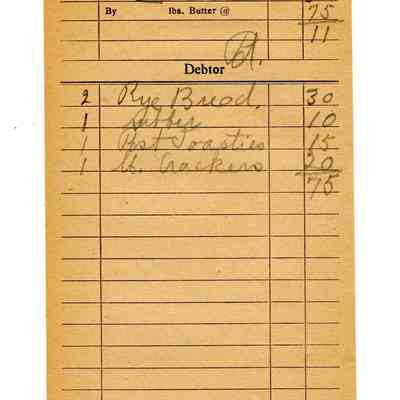 By lbs. Butter @ 75
11
Pd.
Debtor
2 Rye Bread. 30
1 rubber 10
1 Post Toasties 15
1 Crackers 20
75